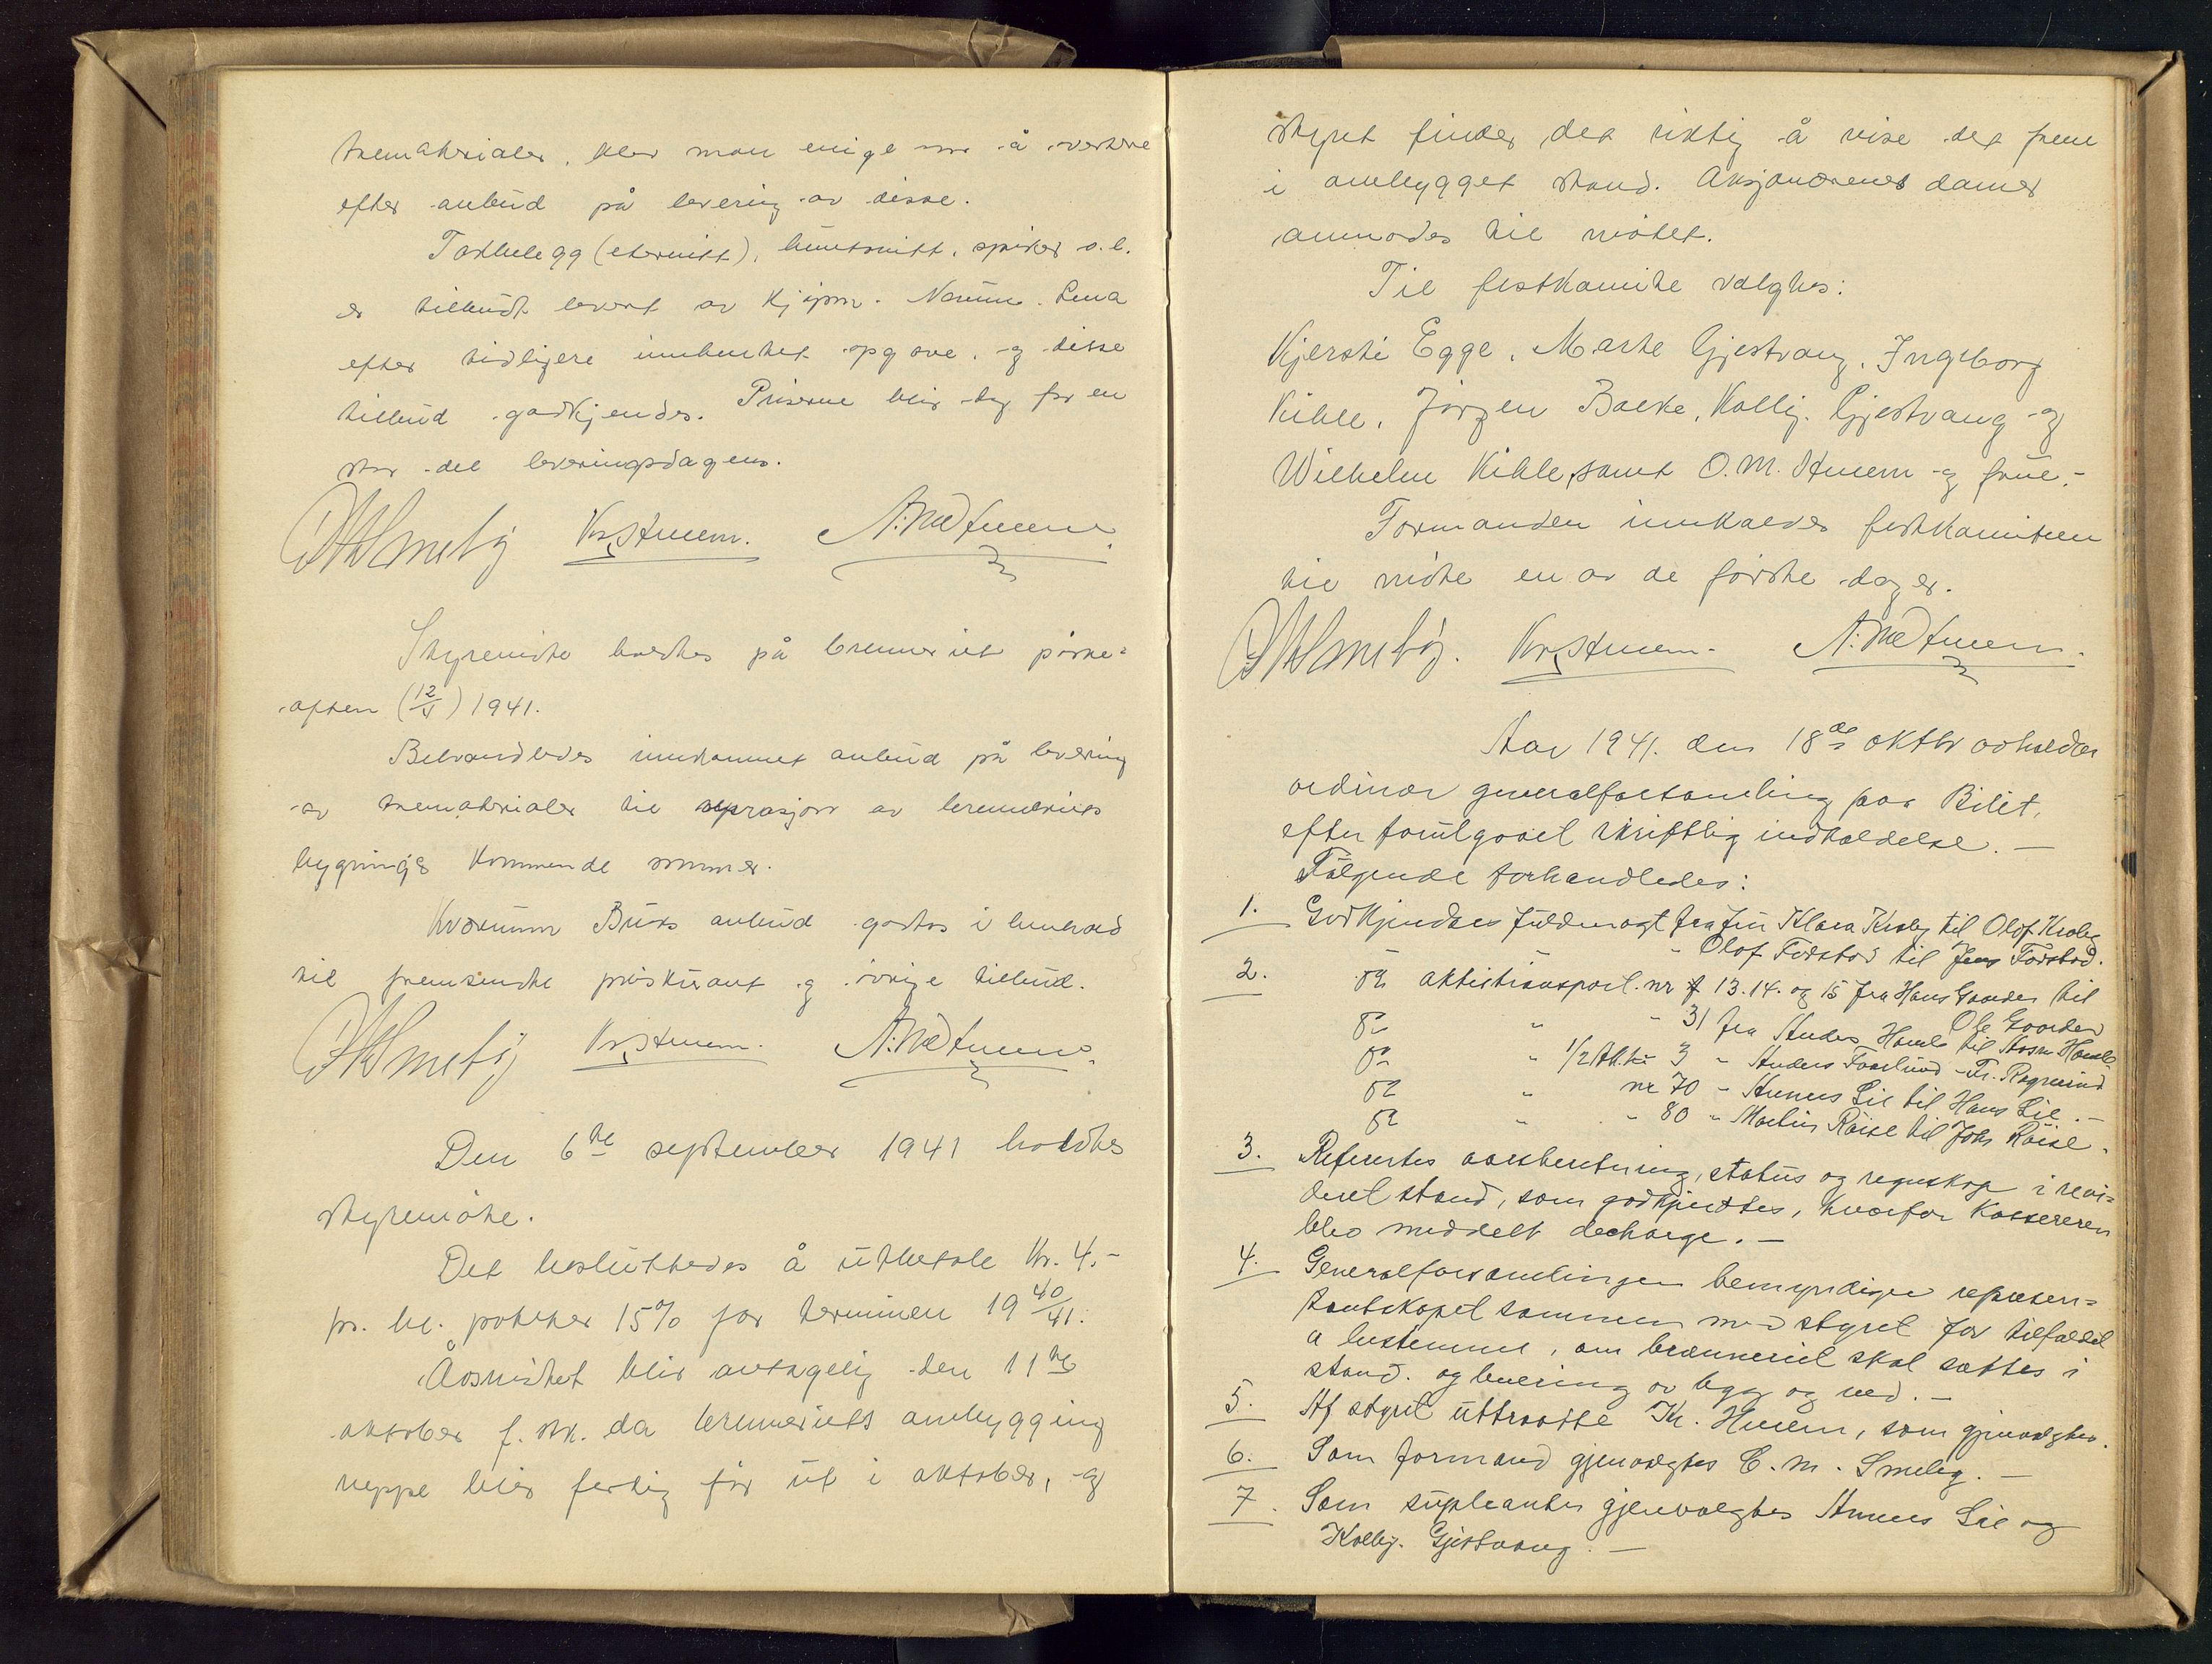 trematerialer, blev man enige om å avertere
efter anbud på levering av disse.
Taktekegg (eternitt), huntonitt, spiker o.l.
er tilbudt levert av kjøpm. Narum. Lena
efter tidligere innhentet opgave, og disse
tilbud godkjendes. Priserne blir dog for en
stor del leveringsdagens.
C.M. Smeby Kr. Huem. A. Nedtuem.
Styremøte holdtes på brenneriet påske=
aften (12/4) 1941.
Behandledes innkommet anbud på levering
av trematerialer til reprasjon av brenneriets
bygninger kommende sommer.
Kværnum Bruks anbud godtas i henhold
til fremsendte priskurant og øvrige tilbud.
C.M. Smeby Kr. Huem. A. Nedtuem.
Den 6te september 1941 holdtes
styremøte.
Det besluttedes å utbetale kr. 4.-
pr. hl. poteter 15% for terminen 19 40/41.
Årsmøtet blir antagelig den 11te
oktober f. stk. da brenneriets ombygging
neppe blir ferdig før ut i oktober, og
styret finder det riktig å vise det frem
i ombygget stand. Aksjonærenes damer
anmodes til møtet.
Til festkomite valgtes:
Kjersti Egge, Marte Gjestvang, Ingeborg
Kihle, Jørgen Bakke, Kolbj. Gjestvang og
Wilhelm Kihle, samt O.M. Huem og frue.-
Formanden innkalder festkomiteen
til møte en av de første dager.
C.M. Smeby. Kr. Huem. A. Nedtuem.
Aar 1941. den 18de oktbr avholdes
ordinær generalforsamling paa Bilit,
efter forutgaael skriftlig indkaldelse. —
Følgende forhandledes:
1. Godkjendtes fuldmagt fra fru Klara Kraby til Olof Kraby
" Olof Fodstad til Jens Fodstad.
2. " aktietransport. nr 13. 14. og 15 fra Hans Gaarder til
Ole Gaarder
" " 31 fra Anders Homle til Aasm. Homle
" 1/2 Aktie 3 " Anders Faarlund - Fr. Rognerud
" nr 70 - Hennes Lie til Hans Lie. -
" " 80 " Martin Røise til Johs Røise.
3. Refertes aarsberetning, status og regnskap i revi=
deret stand, som godkjendtes, hvorfor kassereren
blev meddelt decharge. —
4. Generalforsamlingen bemyndiger represen=
tantskapet sammen med styret for tilfældet
a bestemme, om brænneriet skal sættes i
stand. og levering av bygg og ved. —
5. Af styret uttraatte Kr. Huem, som gjenvalgtes.
6. Som formand gjenvalgtes C. M. Smeby. —
7. Som supleanter gjenvalgtes Hennes Lie og
Kolbj. Gjestvang. —